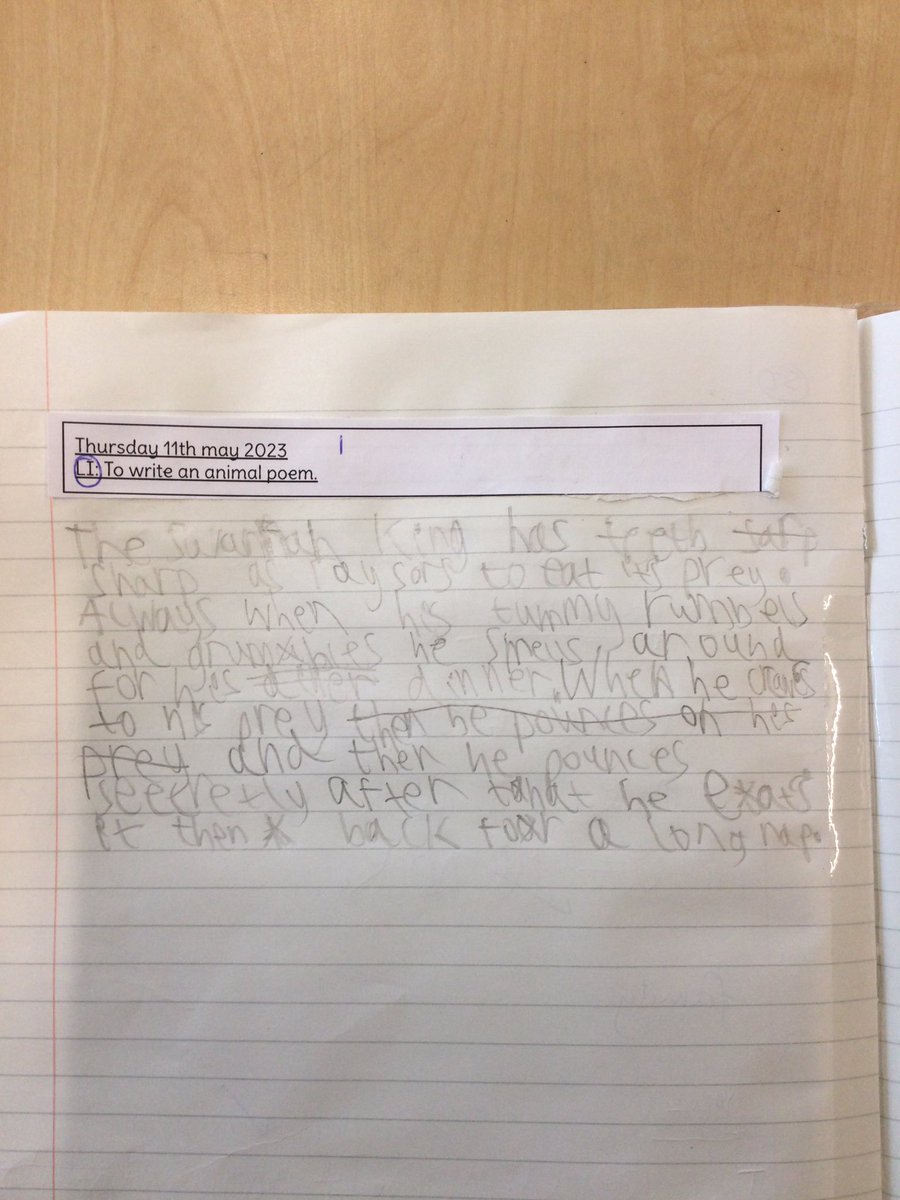 Thursday 11th may 2023
i
LI: To write an animal poem.
The King has teeth
sharp as raysors to eat its prey.
Always when his tummy rumbels
and grumbles he smells around
for his dinner. When he
to his prey then he pounces on his
prey and then he pounces
after that he eats
it then back for a long nap.